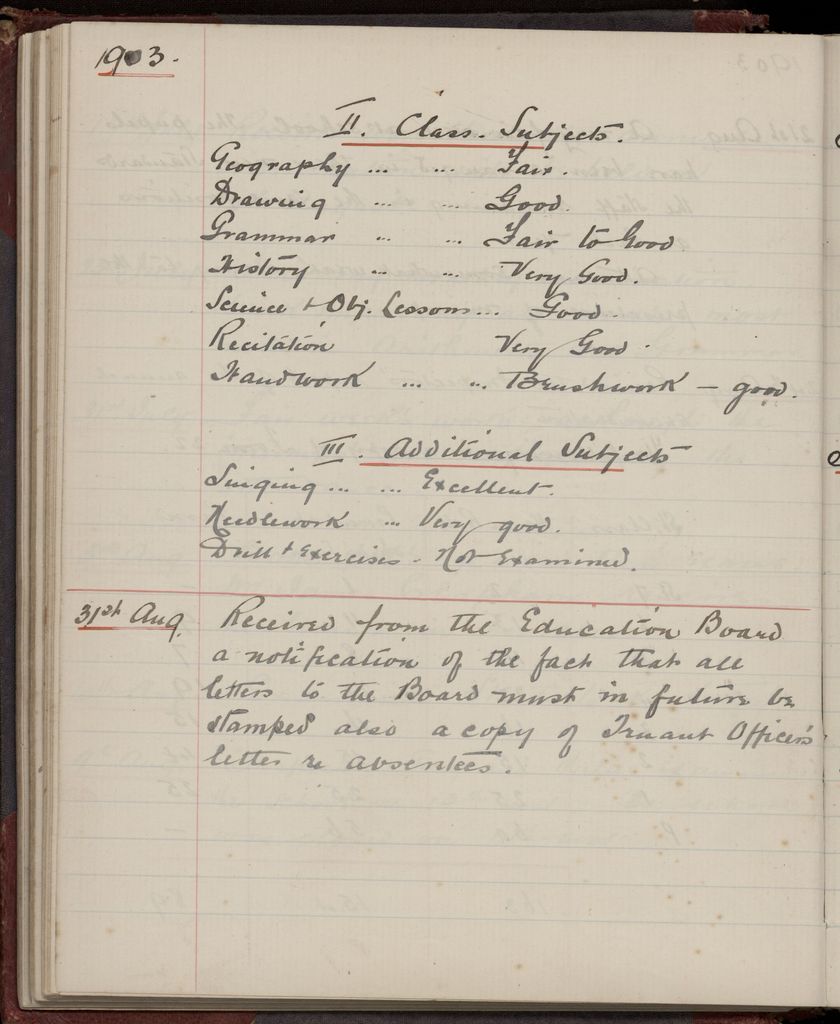 1903.
II. Class. Subjects.
Geography ... ... Fair.
Drawing ... Good.
Grammar ... ... Fair to Good
History ... ... Very Good.
Science & Obj. Lessons... Good.
Recitation Very Good.
Handwork ... ... Brushwork — good.
III. Additional Subjects
Singing ... ... Excellent.
Needlework ... Very good.
Drill & Exercises - Not Examined.
31st Aug. Received from the Education Board
a notification of the fact that all
letters to the Board must in future be
stamped also a copy of Truant Officer's
letter re absentees.